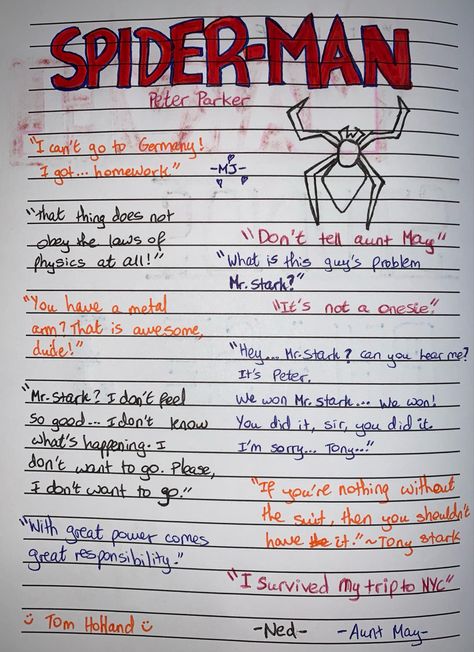 SPIDER-MAN
Peter Parker
"I can't go to Germany!
I got... homework"
-MJ-
"that thing does not
obey the laws of
physics at all!"
"Don't tell aunt May"
"What is this guy's problem
Mr. Stark?"
"You have a metal
arm? That is awesome,
dude!"
"It's not a onesie".
"Hey... Mr. Stark? can you hear me?
It's Peter.
We won Mr. Stark... We won!
You did it, sir, you did it.
I'm sorry... Tony..."
"Mr. Stark? I don't feel
so good... I don't know
what's happening. I
don't want to go. Please,
I don't want to go."
"If you're nothing without
the suit, then you shouldn't
have it." ~Tony stark
"With great power comes
great responsibility."
"I survived my trip to NYC"
Tom Holland
-Ned-
-Aunt May-